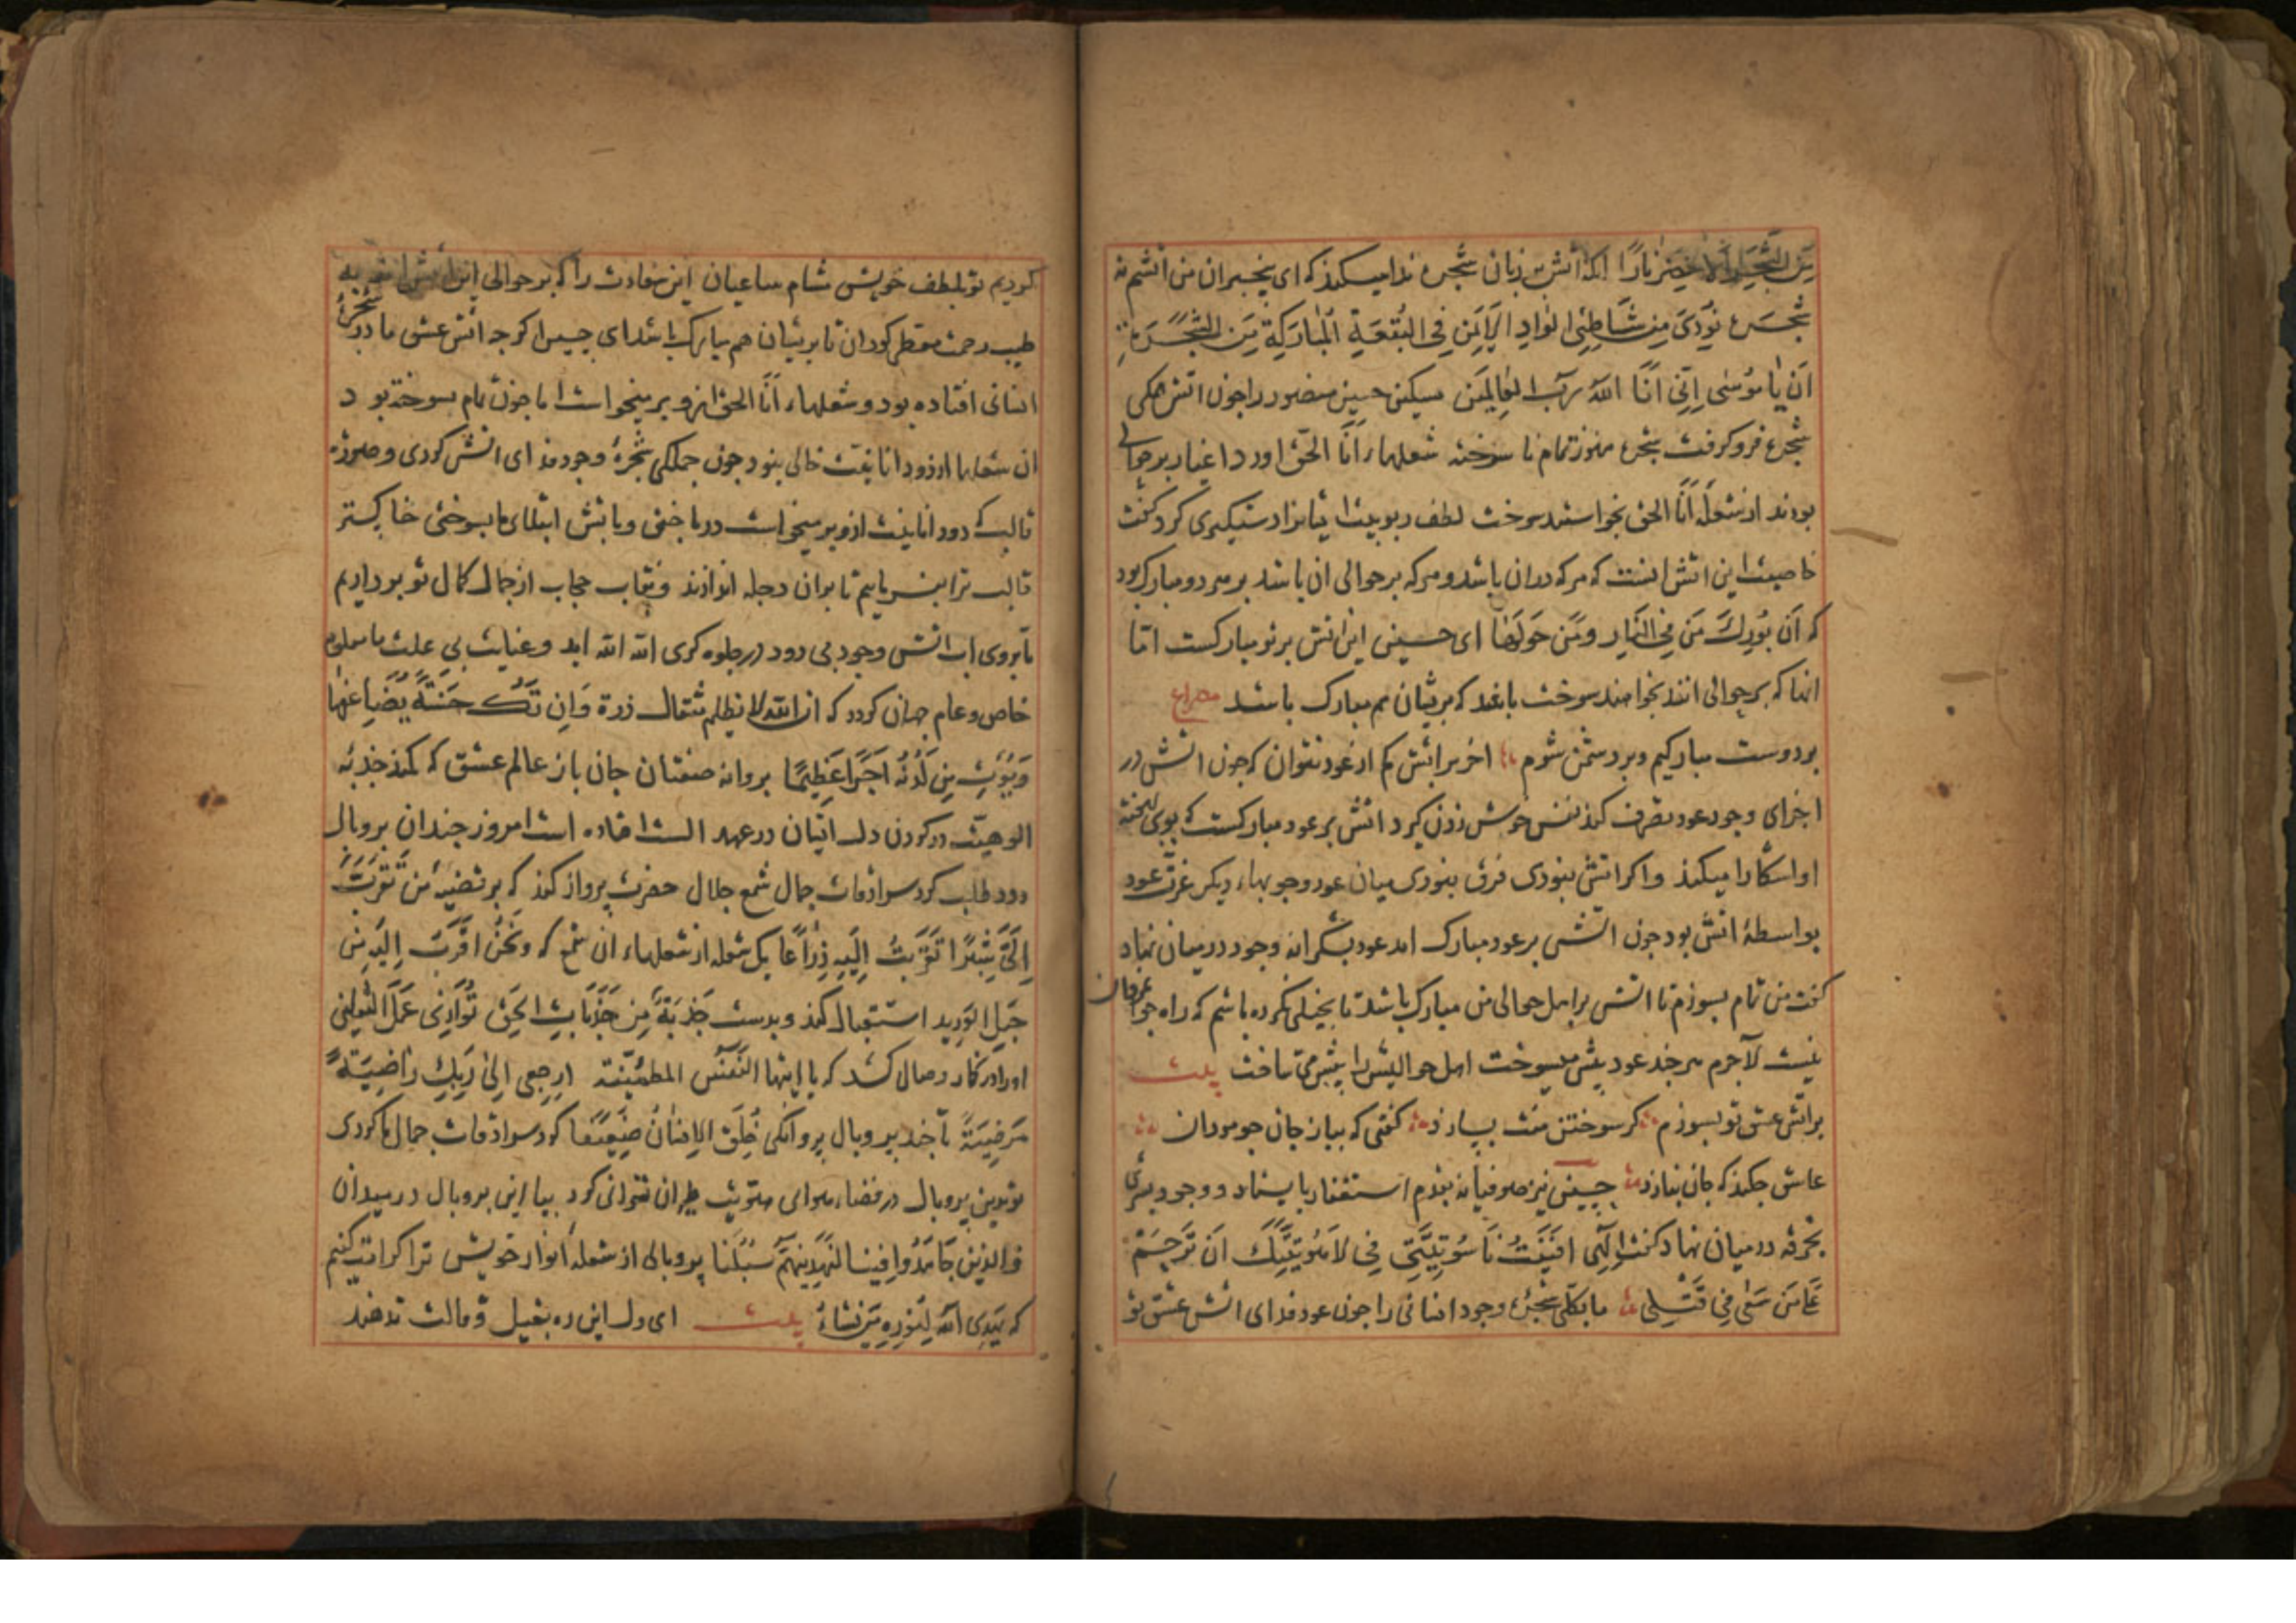 مِنَ الشَّجَرِ الْاَخْضَرِ نَارًا انکه اتش بزبان شجره ندا میکند که ای بیخبران من اتشم نه
شجره نُودِیَ مِن شَاطِئِ الْوَادِ الْاَیْمَنِ فِی الْبُقْعَةِ الْمُبَارَکَةِ مِنَ الشَّجَرَةِ
اَن یَا مُوسٰی اِنِّی اَنَا اللهُ رَبُّ الْعَالَمِین مسکین حسین منصور را جون اتش همکی
شجره فروکرفت شجره هنوز تمام نا سوخته شعلهاء اَنَا الحَق اورد اغیار بر حوالی
بودند از شعله اَنَا الحق بخواستند سوخت لطف ربوبیت ایشانرا دستکیری کرد کفت
خاصیت این اتش انست که هرکه دران باشد و هرکه بر حوالی ان باشد بر هر دو مبارک بود
که اَن بُورِكَ مَن فِی النَّارِ وَمَن حَوْلَهَا ای حسین این اتش بر تو مبارکست اما
انها که بر حوالی اند بخواهند سوخت باید که بریشان هم مبارک باشد مصراع
بر دوست مبارکیم و بر دشمن شوم اخر بر اتش کم از عود نتوان که جون اتش در
اجزای وجود عود تصرف کند نفس خوش زدن کیرد اتش بر عود مبارکست که بوی نهفته
او اشکارا میکند و اکر اتش نبودی فرق نبودی میان عود و جوبهاء دیکر عزت عود
بواسطهٔ اتش بود جون اتش بر عود مبارک امد عود بشکرانه وجود در میان نهاد
کفت من تمام بسوزم تا اتش بر اهل حوالی من مبارک باشد تا بخیلی نکرده باشم که راه جوانمردان
نیست لاجرم هرجند عود بیش میسوخت اهل حوالیش را بیشتر می ساخت بیت
بر اتش عشق تو بسوزم کر سوختن منت بسازد کفتی که بباز جان جو مردان
عاشق جکند که جان نبازد حسین نیز صوفیانه بقدم استغفار بایستاد و وجود بشری
بخرقه در میان نهاد کفت اِلٰهِی اَفْنَیْتُ نَاسُوتِیَّتِی فِی لَاهُوتِیَّتِكَ اَن تَرْحَمَ
عَلٰی مَن سَعٰی فِی قَتْلِی ما بکلی شجرهٔ وجود انسانی را جون عود فدای اتش عشق تو
کردیم تو بلطف خویش مشام ساعیان این سعادت را که بر حوالی این اتش اند به
طیب رحمت معطر کردان تا بریشان هم مبارک باشد ای حسین اکرجه اتش عشق ما در شجرهٔ
انسانی افتاده بود و شعلهاء اَنَا الحق ازو بر میخواست اما جون تمام سوخته نبود
ان شعلها از دود انانیت خالی نبود جون جملکی شجرهٔ وجود فدای اتش کردی و صورت
قالب که دود انانیت ازو بر میخواست درباختی و باتش ابتلای ما بسوختی خاکستر
قالب ترا بفرماییم تا بران دجله اندازند و نقاب حجاب از جمال کمال تو برداریم
تا بروی اب اتش وجود بی دود در جلوه کری الله الله اید و عنایت بی علت ما معلوم
خاص و عام جهان کردد که اِن الله لا یظلم مثقال ذرة وَاِن تَكُ حَسَنَةً یُضَاعِفْهَا
وَیُؤْتِ مِن لَدُنْهُ اَجْرًا عَظِیمًا بروانه صفتان جان باز عالم عشق که کمند جذبهٔ
الوهیت در کردن دل ایشان در عهد الست افتاده است امروز جندان بر و بال
درد طلب کرد سرادقات جمال شمع جلال حضرت پرواز کنند که بر قضیهٔ مَن تَقَرَّبَ
اِلَیَّ شِبْرًا تَقَرَّبْتُ اِلَیْهِ ذِرَاعًا یک شعله از شعلهاء ان شمع که وَنَحْنُ اَقْرَبُ اِلَیْهِ مِن
حَبْلِ الْوَرِیدِ استقبال کند و بدست جَذْبَةٌ مِن جَذَبَاتِ الحَقِّ تُوَازِی عَمَلَ الثَّقَلَیْنِ
او را در کنار وصال کشد که یا ایتها النفس المطمئنة ارجعی اِلٰی رَبِّكِ رَاضِیَةً
مَرْضِیَّةً تا جند ببر و بال پروانکی خُلِقَ الْاِنْسَانُ ضَعِیفًا کرد سرادقات جمال ما کردی
تو بدین پر و بال در فضاء هوای هویت طیران نتوانی کرد بیا این بر و بال در میدان
وَالَّذِینَ جَاهَدُوا فِینَا لَنَهْدِیَنَّهُمْ سُبُلَنَا پر و بالی از شعله انوار خویش ترا کرامت کنیم
که یَهْدِی اللهُ لِنُورِهِ مَن یَشَاءُ بیت ای دل این ره بقیل و قالت ندهند